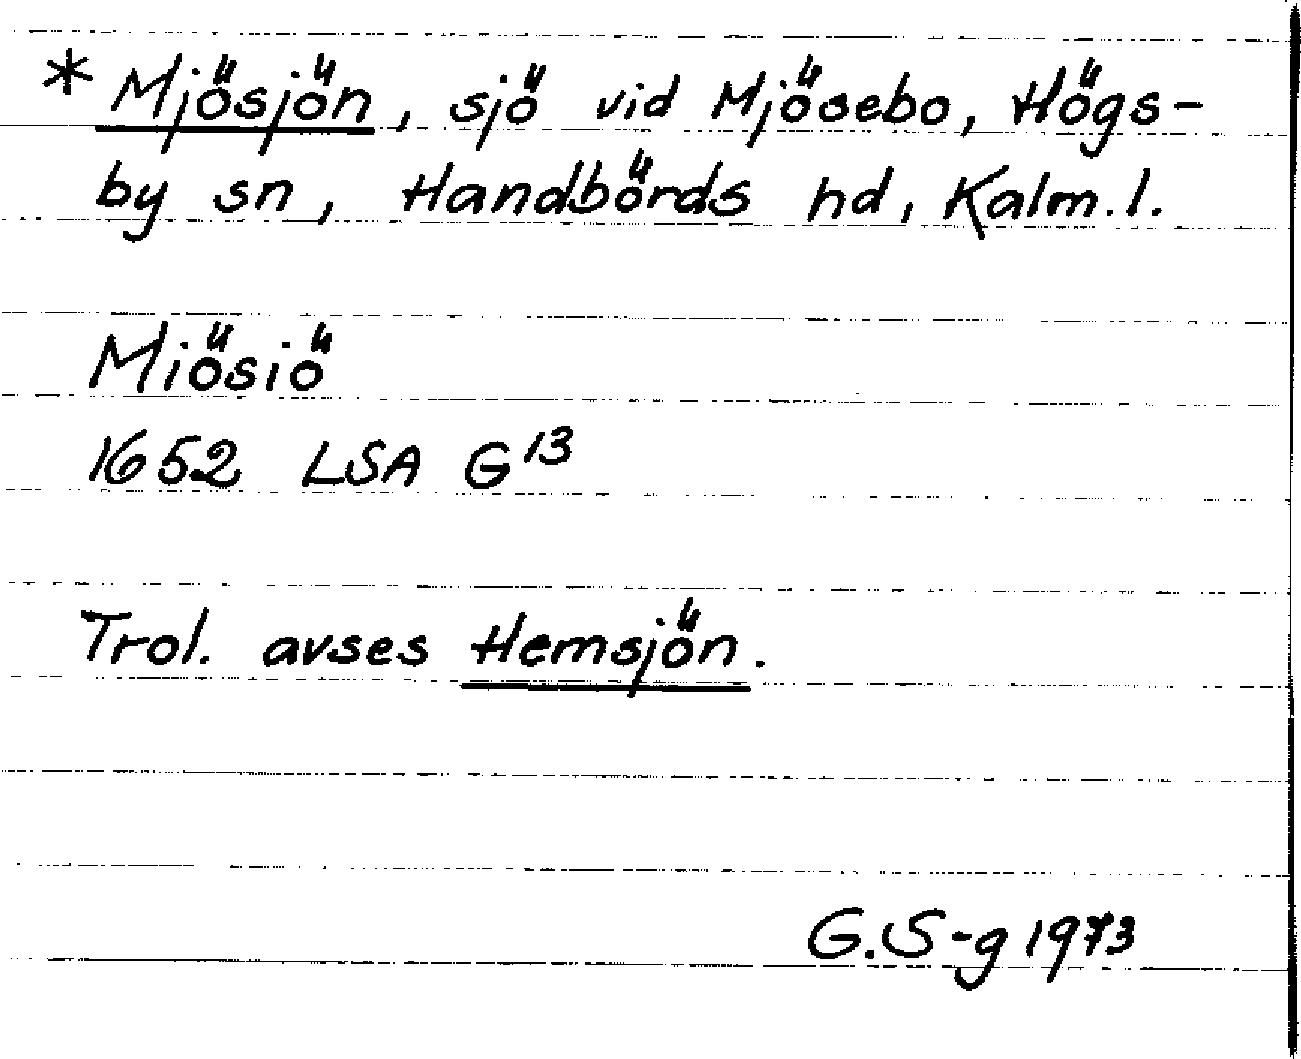 * Mjösjön, sjö vid Mjösebo, Högs-
by sn, Handbörds hd, Kalm. l.
Miösiö
1652 LSA G 13
Trol. avses Hemsjön.
G. S-g 1973